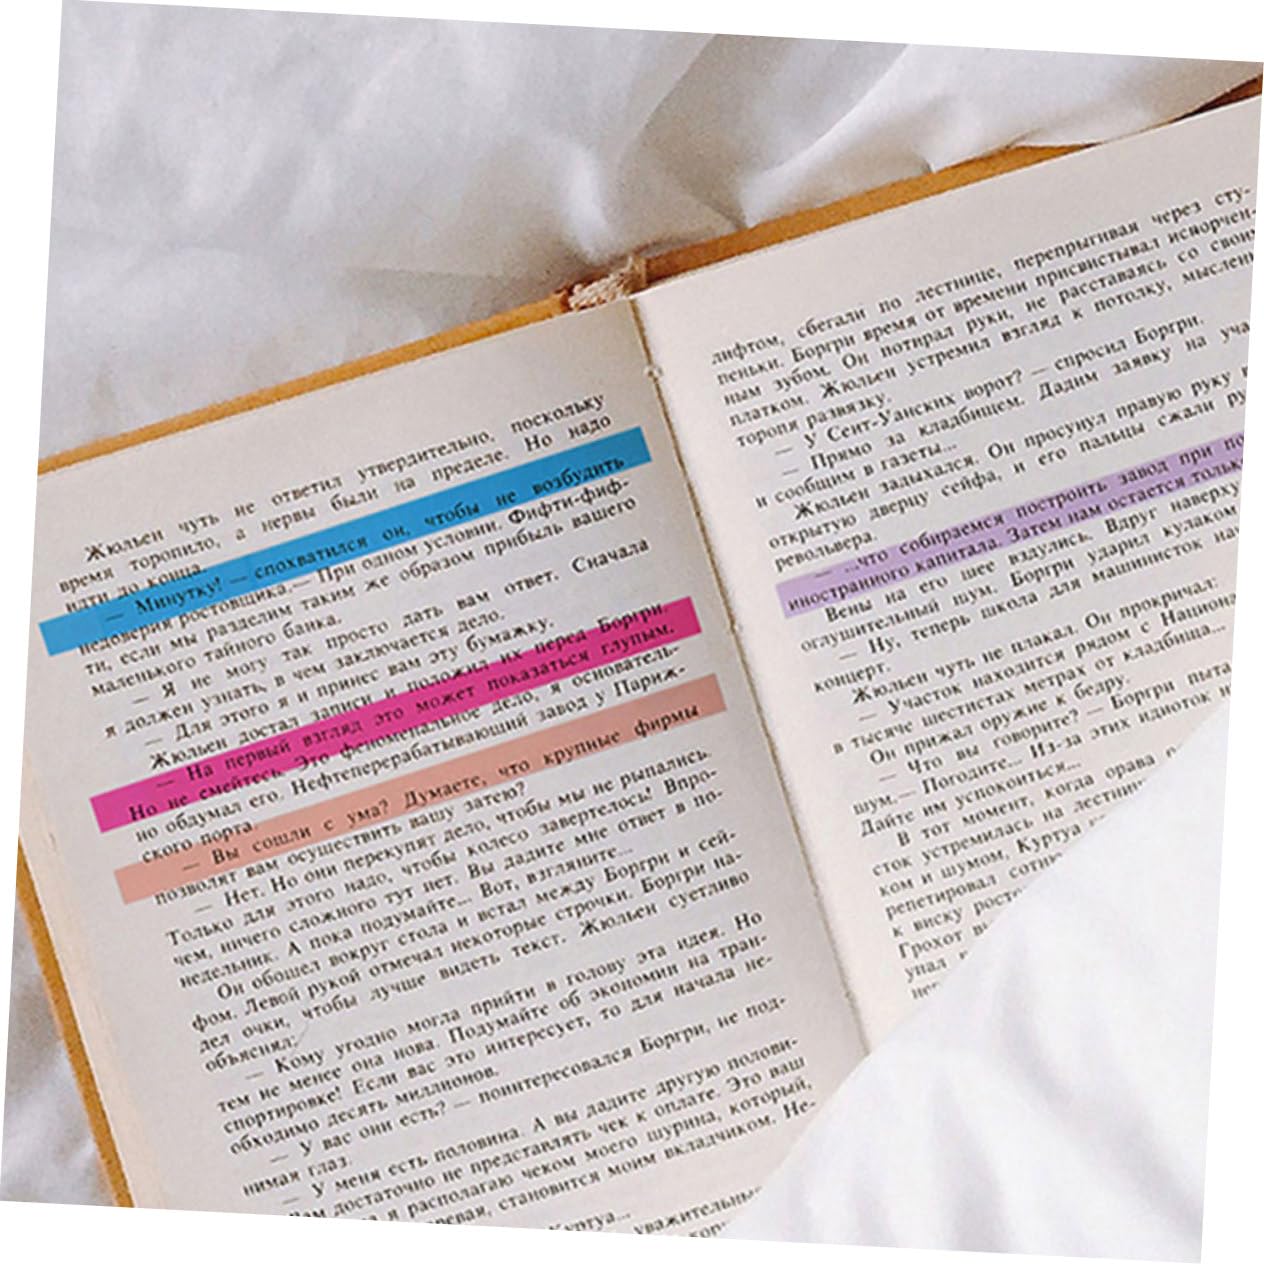 Жюльен чуть не ответил утвердительно, поскольку
время торопило, а нервы были на пределе. Но надо
идти до конца.
— Минутку! — спохватился он, чтобы не возбудить
недоверия ростовщика.— При одном условии. Фифти-фиф-
ти, если мы разделим таким же образом прибыль вашего
маленького тайного банка.
— Я не могу так просто дать вам ответ. Сначала
я должен узнать, в чем заключается дело.
— Для этого я и принес вам эту бумажку.
Жюльен достал записи и положил их перед Боргри.
— На первый взгляд это может показаться глупым.
Но не смейтесь. Это феноменальное дело, я основатель-
но обдумал его. Нефтеперерабатывающий завод у Париж-
ского порта.
— Вы сошли с ума? Думаете, что крупные фирмы
позволят вам осуществить вашу затею?
— Нет. Но они перекупят дело, чтобы мы не рыпались.
Только для этого надо, чтобы колесо завертелось! Впро-
чем, ничего сложного тут нет. Вы дадите мне ответ в по-
недельник. А пока подумайте... Вот, взгляните...
Он обошел вокруг стола и встал между Боргри и сей-
фом. Левой рукой отмечал некоторые строчки. Боргри на-
дел очки, чтобы лучше видеть текст. Жюльен суетливо
объяснял:
— Кому угодно могла прийти в голову эта идея. Но
тем не менее она нова. Подумайте об экономии на тран-
спортировке! Если вас это интересует, то для начала не-
обходимо десять миллионов.
— У вас они есть? — поинтересовался Боргри, не под-
нимая глаз.
— У меня есть половина. А вы дадите другую полови-
достаточно не представлять чек к оплате. Это ваш
я располагаю чеком моего шурина, который,
становится моим вкладчиком. Не-
Куртуа...
уважительны
лифтом, сбегали по лестнице, перепрыгивая через сту-
пеньки. Боргри время от времени присвистывал испорчен-
ным зубом. Он потирал руки, не расставаясь со своим
платком. Жюльен устремил взгляд к потолку, мысленн
торопя развязку.
— У Сент-Уанских ворот? — спросил Боргри.
— Прямо за кладбищем. Дадим заявку на уча
и сообщим в газеты...
Жюльен задыхался. Он просунул правую руку в
открытую дверцу сейфа, и его пальцы сжали ру
револьвера.
— ...что собираемся построить завод при по
иностранного капитала. Затем нам остается тольк
Вены на его шее вздулись. Вдруг наверху
оглушительный шум. Боргри ударил кулаком
— Ну, теперь школа для машинисток на
концерт.
Жюльен чуть не плакал. Он прокричал:
— Участок находится рядом с Национа
в тысяче шестистах метрах от кладбища...
Он прижал оружие к бедру.
— Что вы говорите? — Боргри пыта
шум.— Погодите... Из-за этих идиоток н
Дайте им успокоиться...
В тот момент, когда орава
сток устремилась на лестни
ком и шумом, Куртуа
репетировал сотн
к виску рост
Грохот в
упал